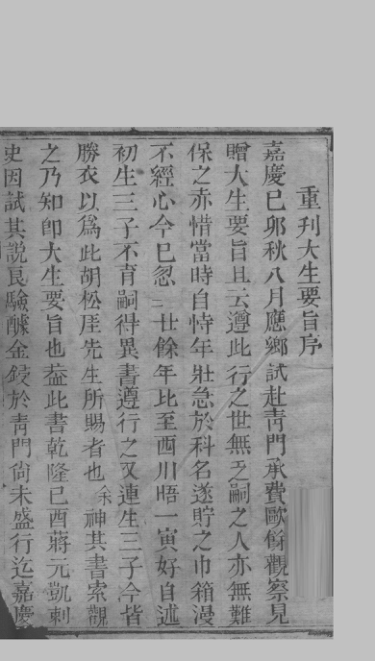 重刋大生要旨序
嘉慶已卯秋八月應鄉試赴靑門承費歐餘觀察見
贈大生要旨且云遵此行之世無乏嗣之人亦無難
保之赤惜當時自恃年壯急於科名遂貯之巾箱漫
不經心今已忽二廿餘年比至西川晤一寅好自述
初生三子不育嗣得異書遵行之又連生三子今皆
勝衣以爲此胡松厓先生所賜者也余神其書索觀
之乃知卽大生要旨也葢此書乾隆已酉蔣元凱刺
史因試其説良驗醵金鋟於靑門尙未盛行迄嘉慶